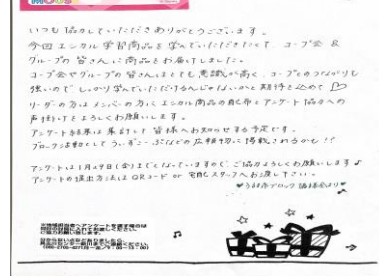 いつも協力していただきありがとうございます。
今回エシカル学習商品を学んでいただきたくて、コープ会 &
グループの皆さんに商品をお届けしました。
コープ会やグループの皆さんはとても意識が高く、コープとのつながりも
強いので、しっかり学んでいただけるんじゃないかと期待を込めて♡
リーダーの方はメンバーの方へ、エシカル商品の配布とアンケート協力への
声掛けをよろしくお願いします。
アンケート結果は集計して皆様へお知らせする予定です。
アンケートは1月29日(金)までとなっていますので、ご協力よろしくお願いします♪
アンケートの提出方法はQRコード or 宅配スタッフへお渡し下さい。